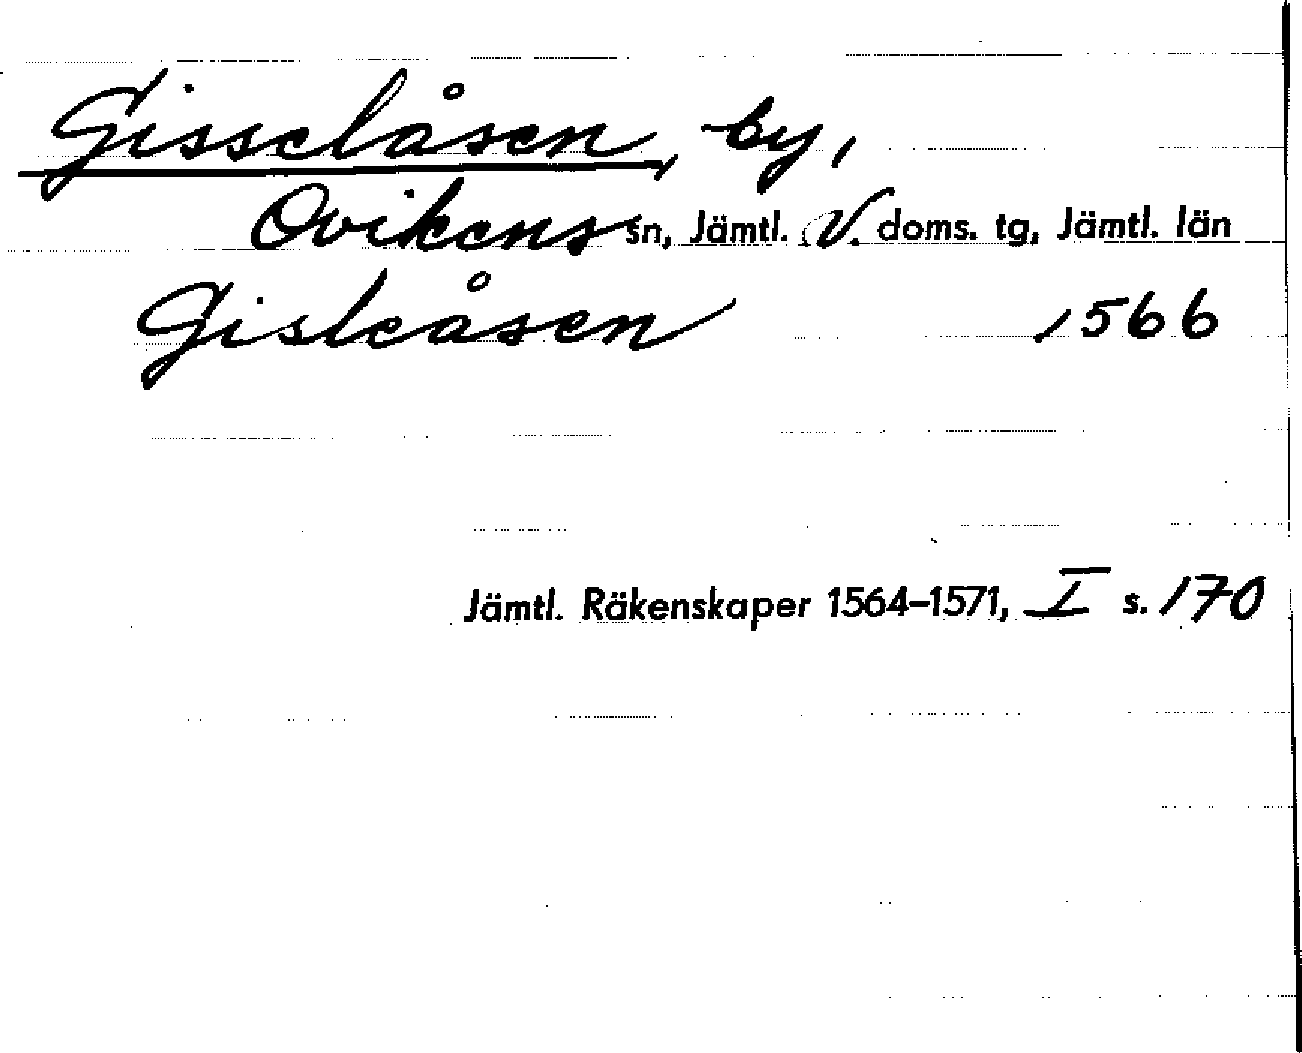 Gisselåsen, by,
Ovikens sn, Jämtl. V. doms. tg, Jämtl. län
Gisleåsen 1566
Jämtl. Räkenskaper 1564-1571, I s. 170